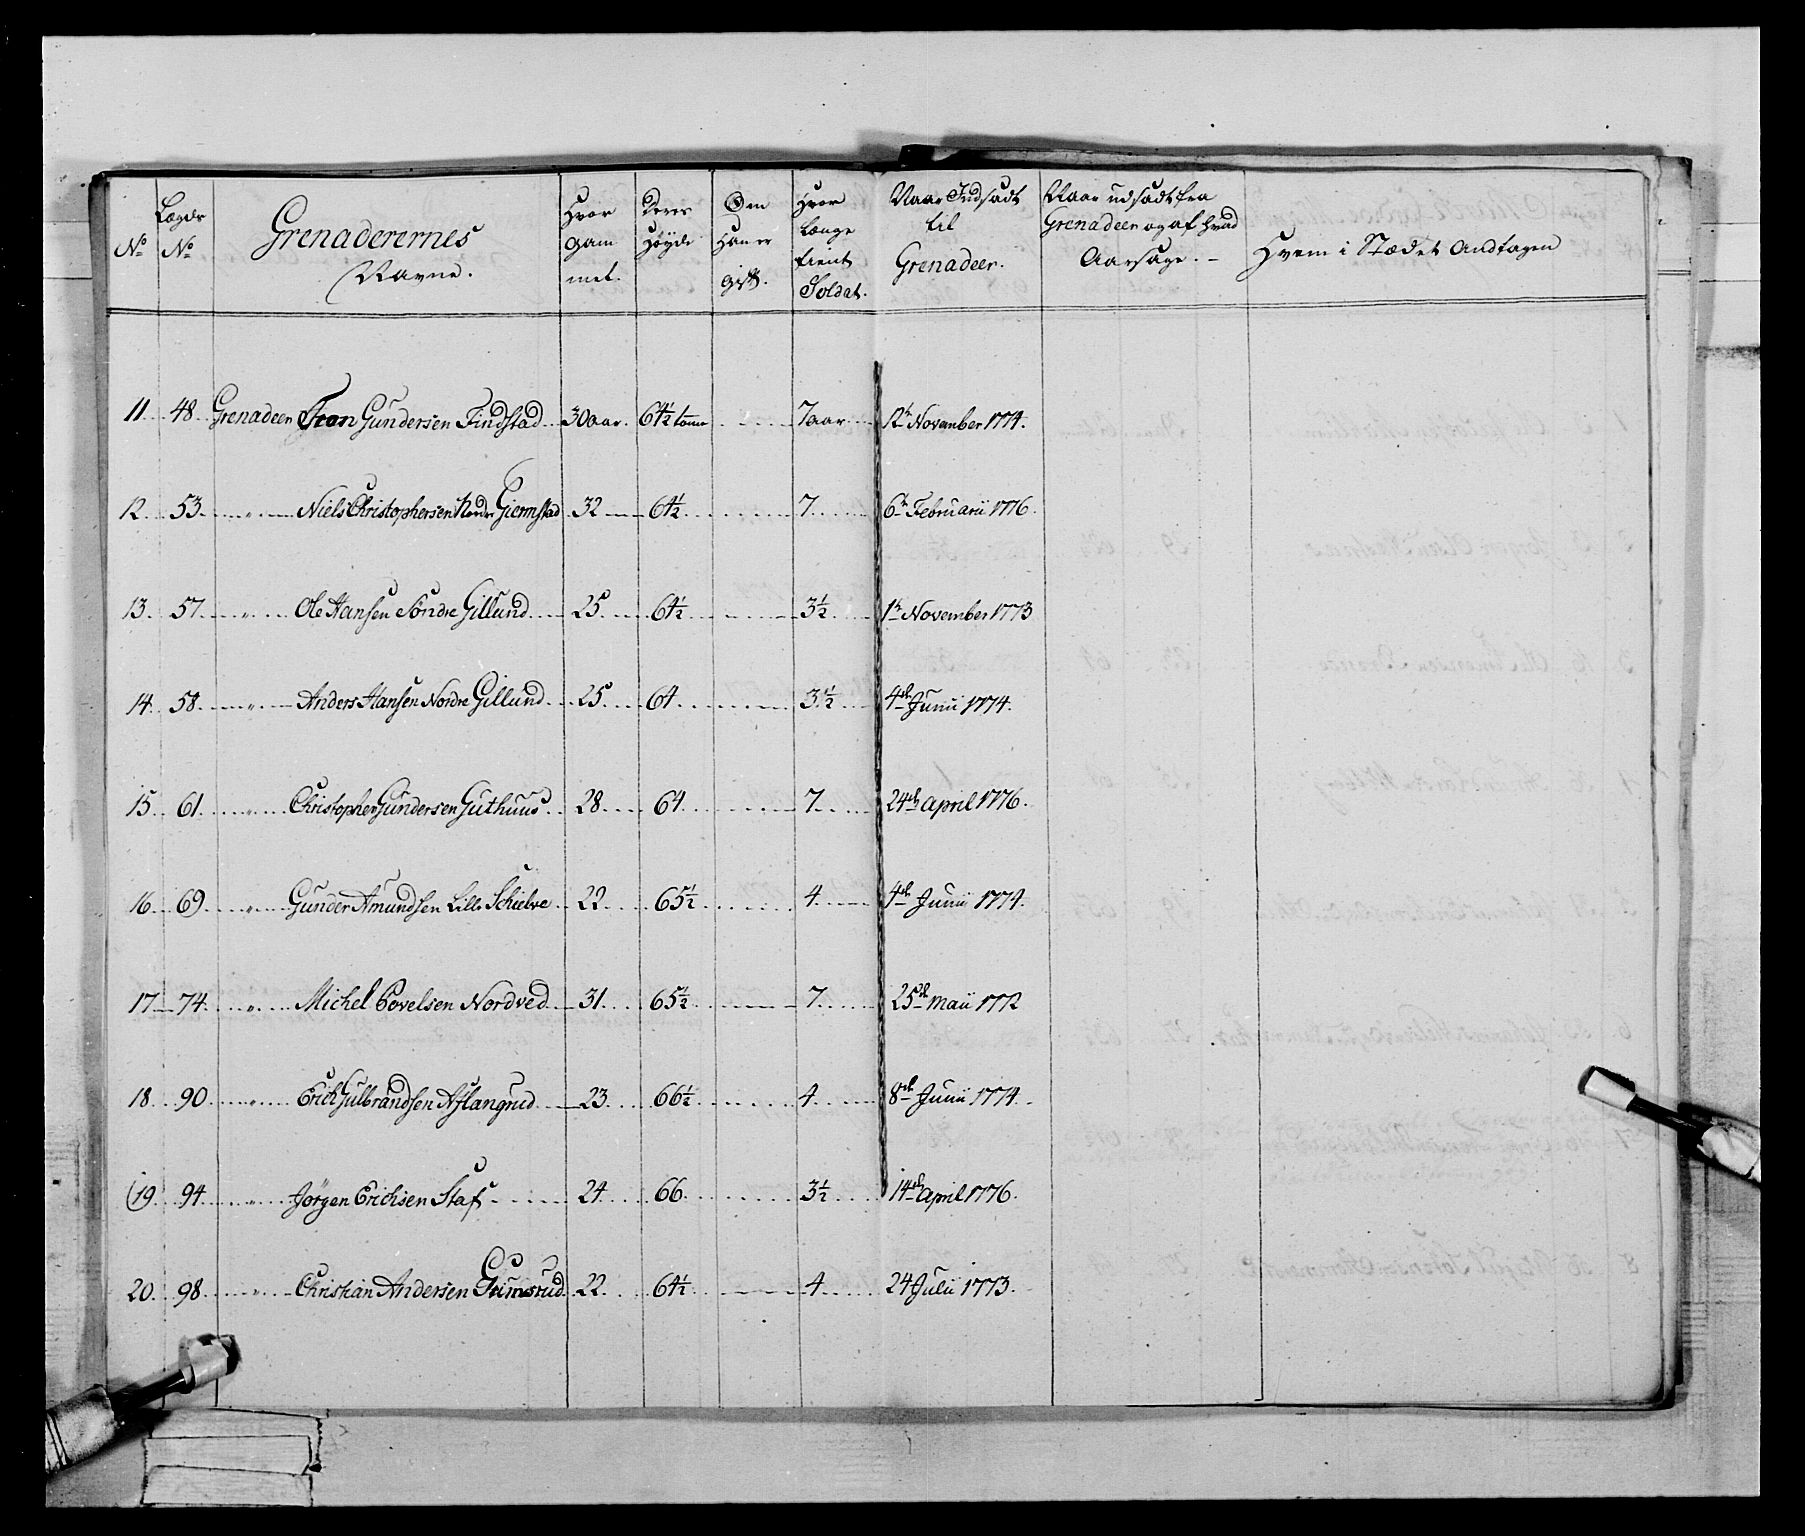 No Lægds No Grenaderernes Navne. Hvor gam mel. Deres Høyde Om Han er gift. Hvor Længe tient Soldat. Naar Indsadt til Grenadeer. Naar udsadt fra Grenadeer og af hvad Aarsage. – Hvem i Stædet Andtagen
11. 48. Grenadeer Iver Gundersen Findstad 30 aar. 64½ tomme 7 aar 12te November 1774.
12. 53. „ Niels Christophersen Nordr Giermstad 32 64½ 7. 6te Februarii 1776.
13. 57. „ Ole Hansen Søndre Gillund 25. 64½ 3½ 1te November 1773
14. 58. „ Anders Hansen Nordre Gillund 25. 64. 3½ 4de Junii 1774.
15. 61. „ Christopher Gundersen Guthuus 28. 64. 7. 24de April 1776.
16. 69. „ Gunder Amundsen Lille Schielve 22. 65½ 4. 4de Junii 1774.
17. 74. „ Michel Povelsen Nordved 31. 65½ 7. 25de Maii 1772
18. 90. „ Erich Gulbrandsen Aslangrud 23. 66½ 4. 8de Junii 1774.
19. 94. „ Jørgen Erichsen Staf 24. 66. 3½ 14de April 1776.
20. 98. „ Christian Andersen Grimsrud 22. 64½ 4. 24 Julii 1773.